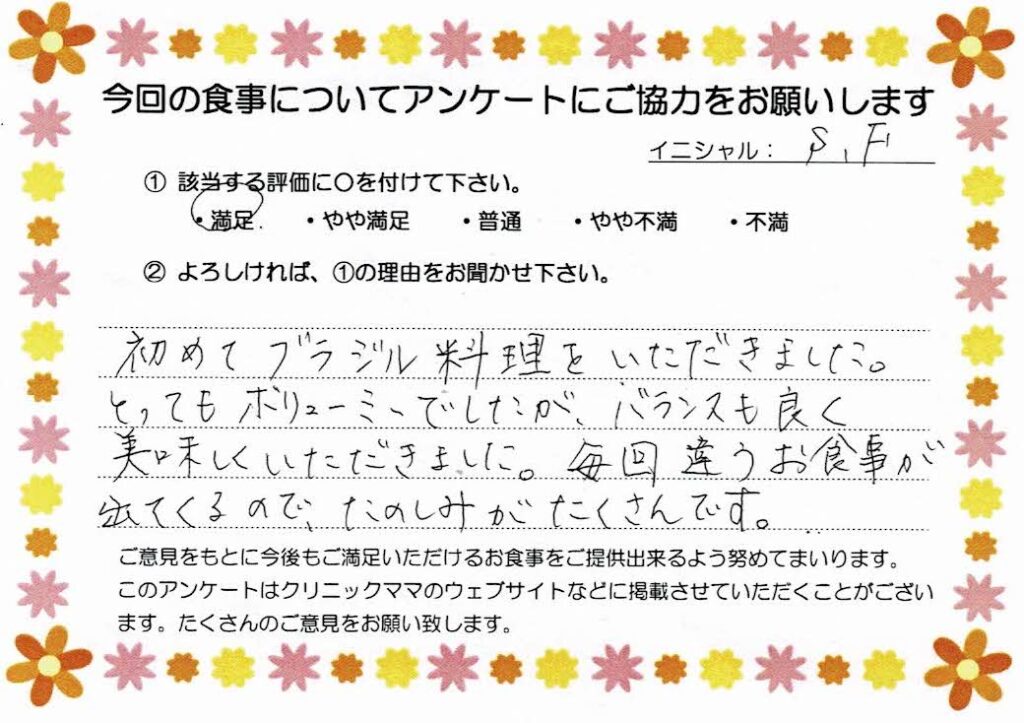 今回の食事についてアンケートにご協力をお願いします
イニシャル： S.F
① 該当する評価に〇を付けて下さい。
・満足 ・やや満足 ・普通 ・やや不満 ・不満
② よろしければ、①の理由をお聞かせ下さい。
初めてブラジル料理をいただきました。
とってもボリューミーでしたが、バランスも良く
美味しくいただきました。毎回違うお食事が
出てくるので、たのしみがたくさんです。
ご意見をもとに今後もご満足いただけるお食事をご提供出来るよう努めてまいります。
このアンケートはクリニックママのウェブサイトなどに掲載させていただくことがござい
ます。たくさんのご意見をお願い致します。